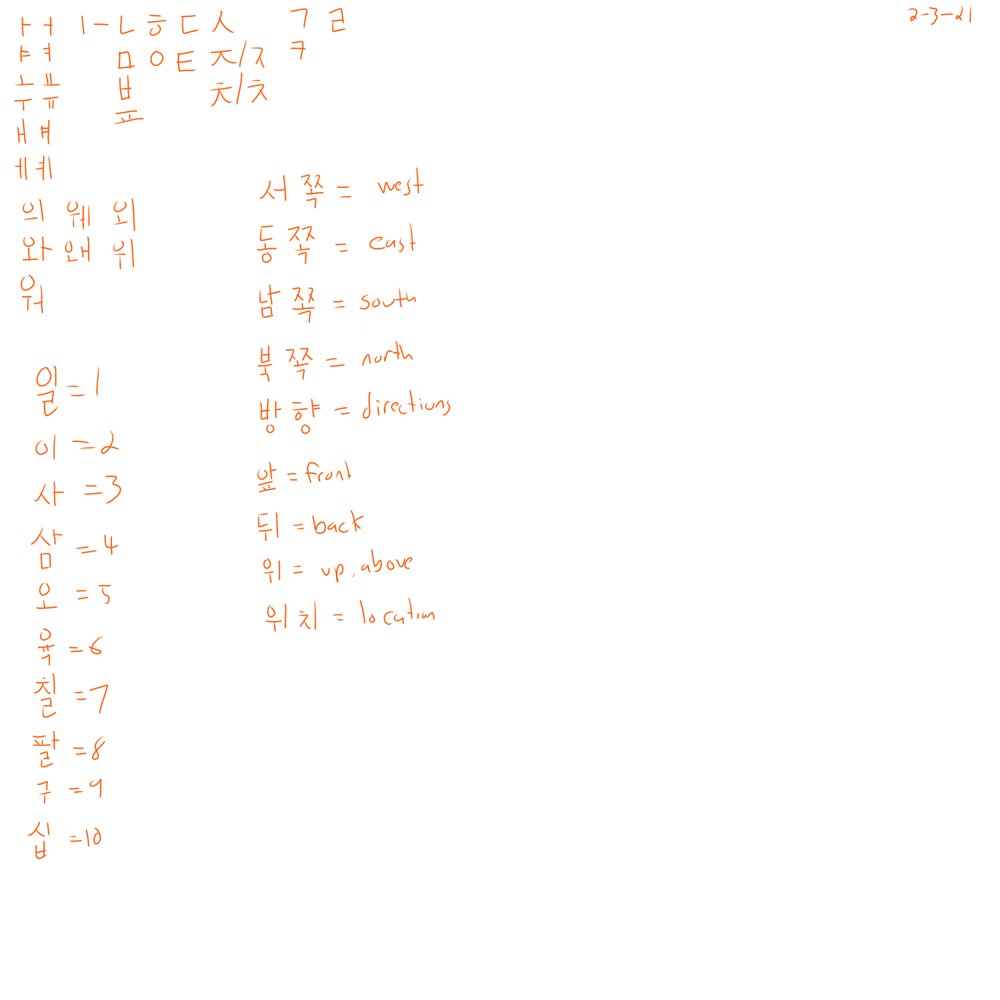 ㅏㅓ ㅣㅡㄴㅎㄷㅅ ㄱㄹ
2-3-21
ㅑㅕ ㅁㅇㅌㅈ/ㅈ ㅋ
ㅗㅛ ㅂ ㅊ/ㅊ
ㅜㅠ ㅍ
ㅐㅒ
ㅔㅖ
의 웨 외
와 왜 위
워
서쪽 = west
동쪽 = east
남쪽 = south
북쪽 = north
방향 = directions
앞 = front
뒤 = back
위 = up, above
위치 = location
일 = 1
이 = 2
사 = 3
삼 = 4
오 = 5
육 = 6
칠 = 7
팔 = 8
구 = 9
십 = 10